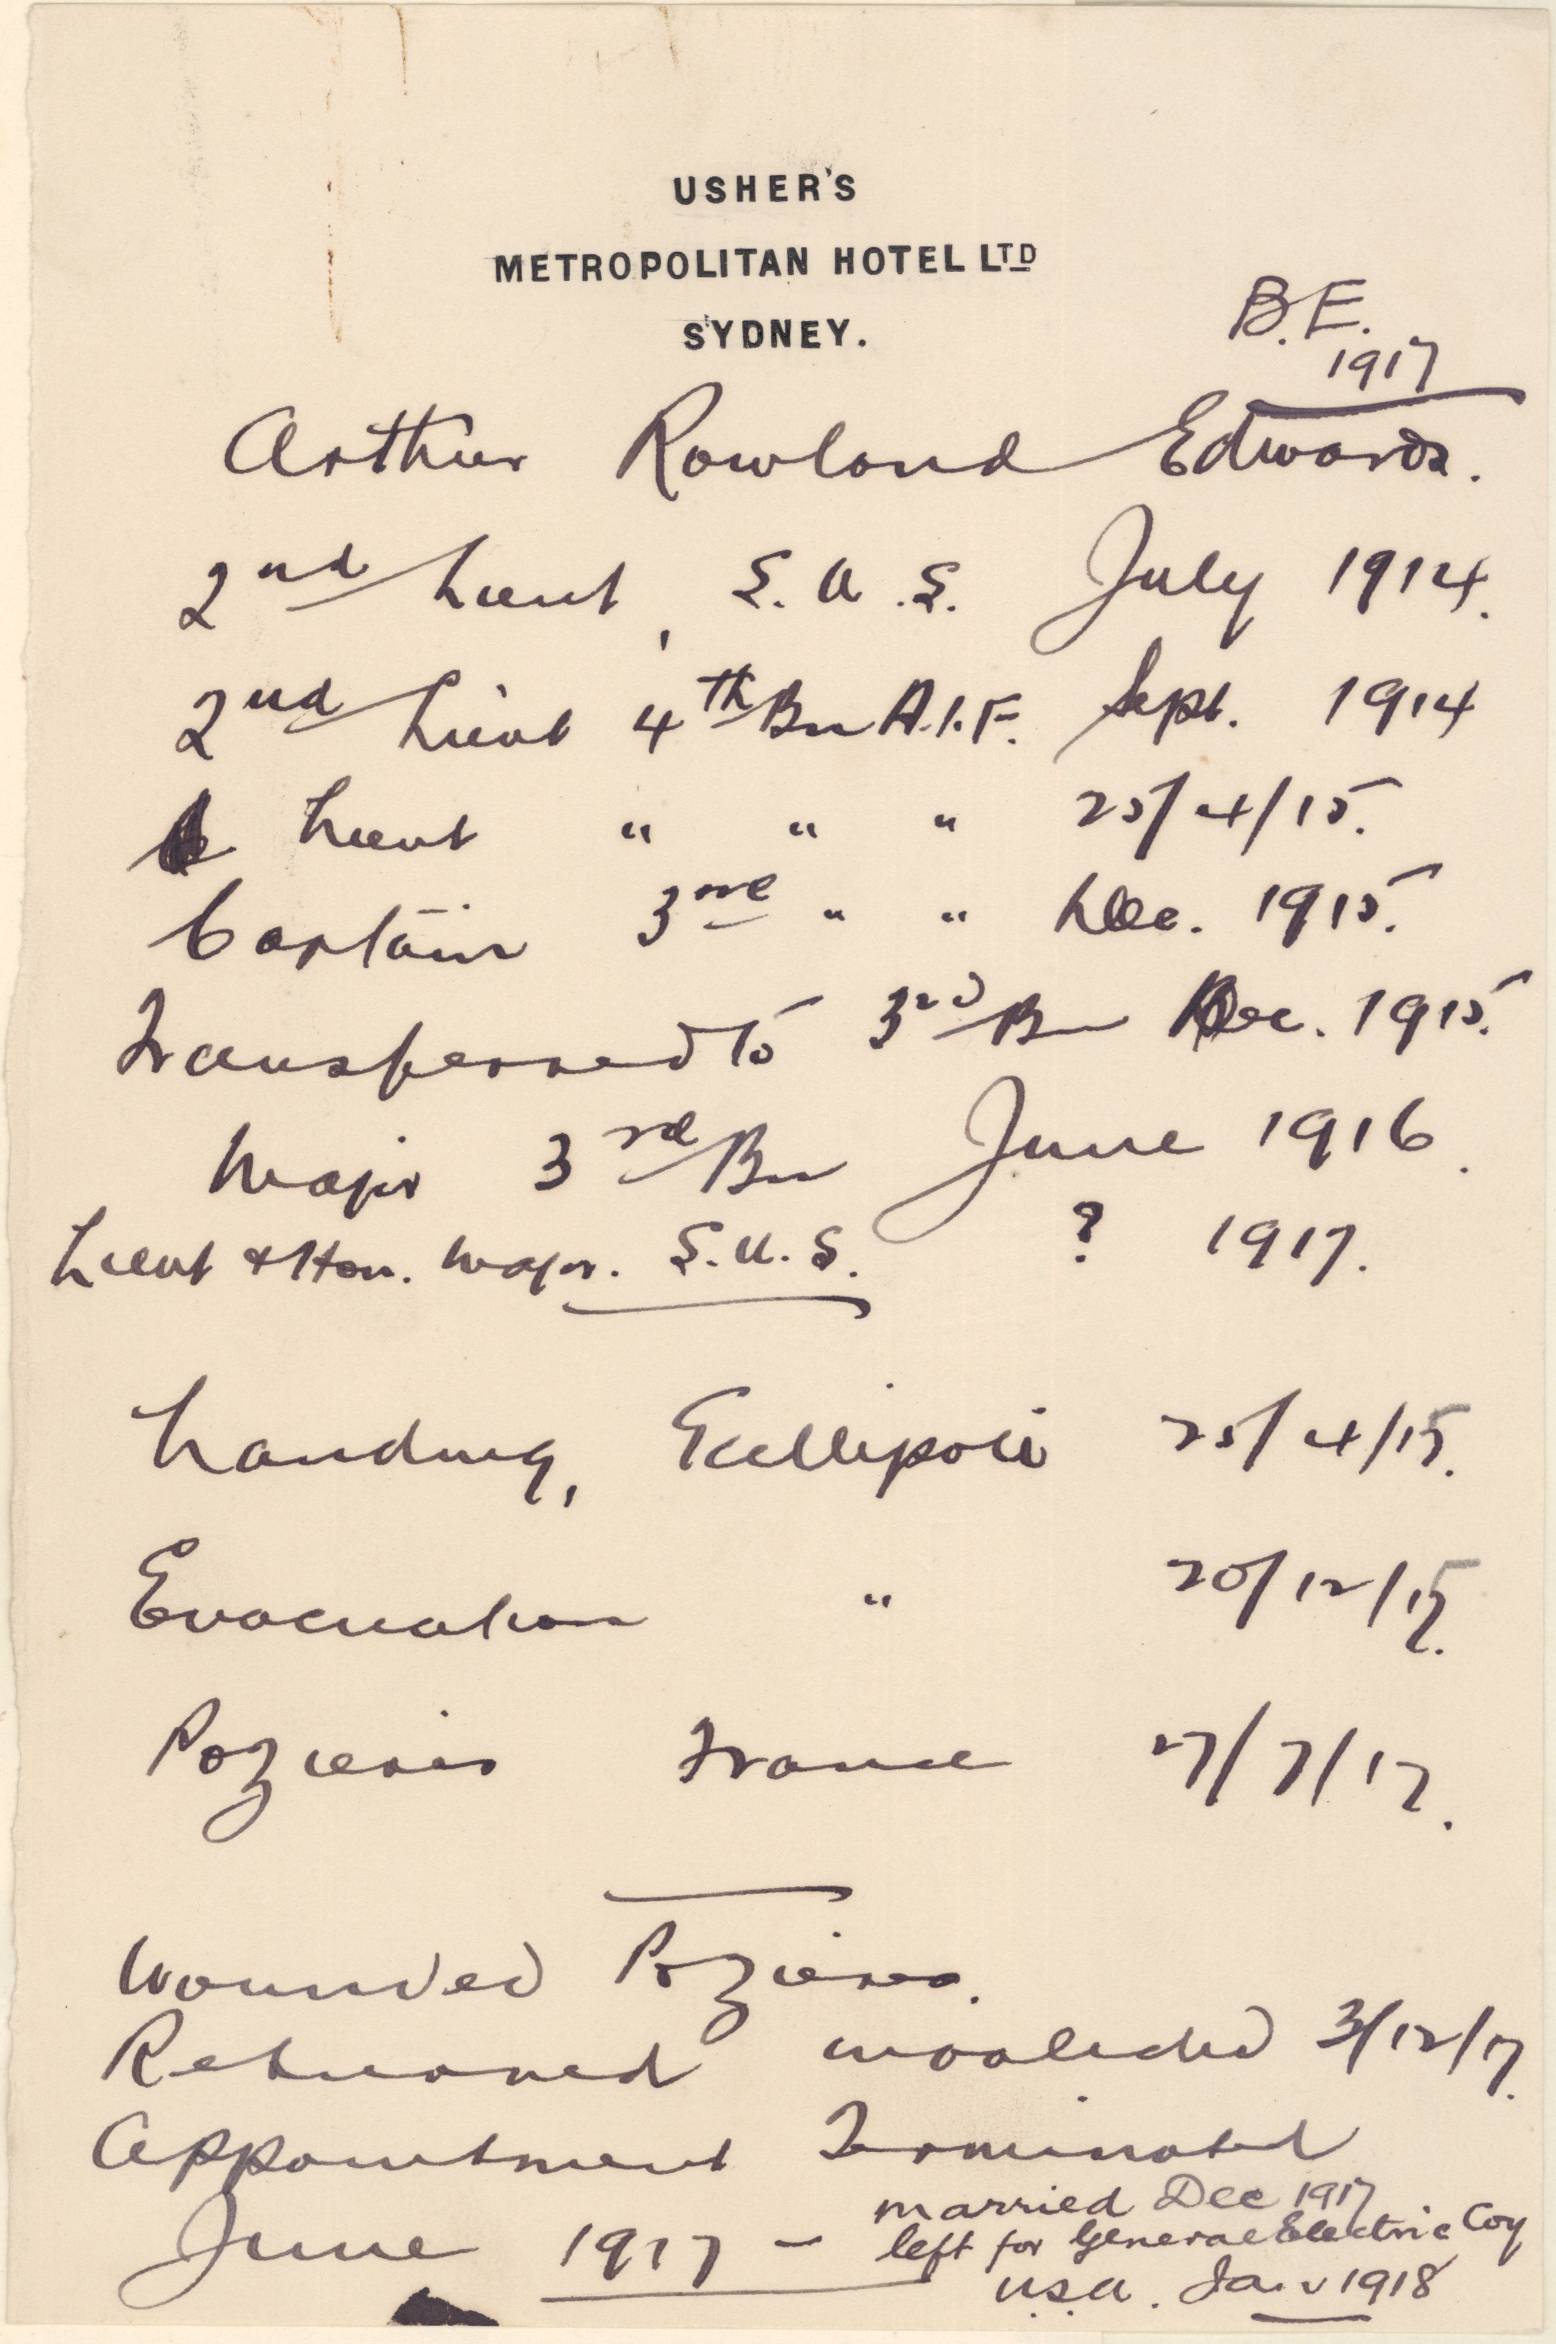 USHER'S
METROPOLITAN HOTEL LTD
SYDNEY.
B.E.
1917
Arthur Rowland Edwards.
2nd Lieut, S.U.S. July 1914.
2nd Lieut 4th Bn A.I.F. Sept. 1914
Lieut " " " 25/4/15.
Captain 3rd " " Dec. 1915.
Transferred to 3rd Bn Dec. 1915.
Major 3rd Bn June 1916.
Lieut & Hon. Major. S.U.S. ? 1917.
Landing, Gallipoli 25/4/15.
Evacuation " 20/12/15.
Pozieres France 27/7/17.
Wounded Pozieres.
Returned invalided 3/12/17.
Appointment Terminated
June 1917 - married Dec 1917
left for General Electric Coy
U.S.A. Jan 1918